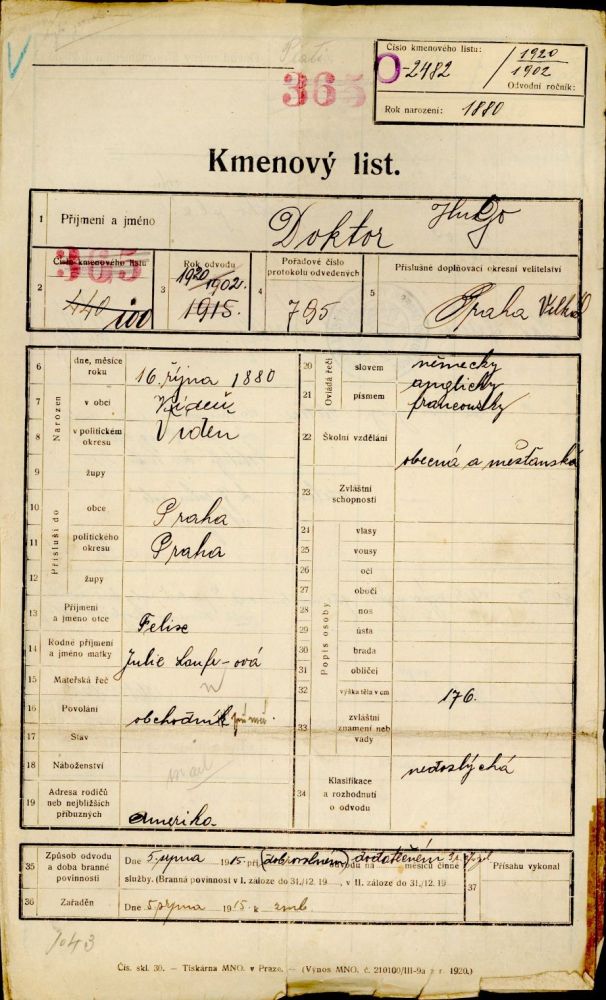 Číslo kmenového listu:
O-2482 / 1920
1902
Odvodní ročník:
Rok narození: 1880
365
Kmenový list.
1 Příjmení a jméno Doktor Hugo
2 Číslo kmenového listu 365
440 100
3 Rok odvodu 1920/1902
1915
4 Pořadové číslo protokolu odvedených 795
5 Příslušné doplňovací okresní velitelství Praha Velká
Narozen
6 dne, měsíce roku 16. října 1880
7 v obci Vídeň
8 v politickém okresu Vídeň
9 župy
Přísluší do
10 obce Praha
11 politického okresu Praha
12 župy
13 Příjmení a jméno otce Felix
14 Rodné příjmení a jméno matky Julie
15 Mateřská řeč n
16 Povolání obchodník
17 Stav
18 Náboženství
19 Adresa rodičů neb nejbližších příbuzných Amerika
Ovládá řeči
20 slovem německy
anglicky
21 písmem francouzsky
22 Školní vzdělání obecná a měšťanská
23 Zvláštní schopnosti
Popis osoby
24 vlasy
25 vousy
26 oči
27 obočí
28 nos
29 ústa
30 brada
31 obličej
32 výška těla v cm 176.
33 zvláštní znamení neb vady
34 Klasifikace a rozhodnutí o odvodu nedoslýchá
35 Způsob odvodu a doba branné povinnosti
Dne 5 srpna 1915 při (dobrovolném) dodatečném odvodu na měsíců činné
služby. (Branná povinnost v I. záloze do 31./12. 19 , v II. záloze do 31./12. 19
37 Přísahu vykonal
36 Zařaděn Dne 5 srpna 1915 k zmb.
7043
Čís. skl. 30. — Tiskárna MNO. v Praze. — (Výnos MNO. č. 210100/III-9a z r. 1920.)